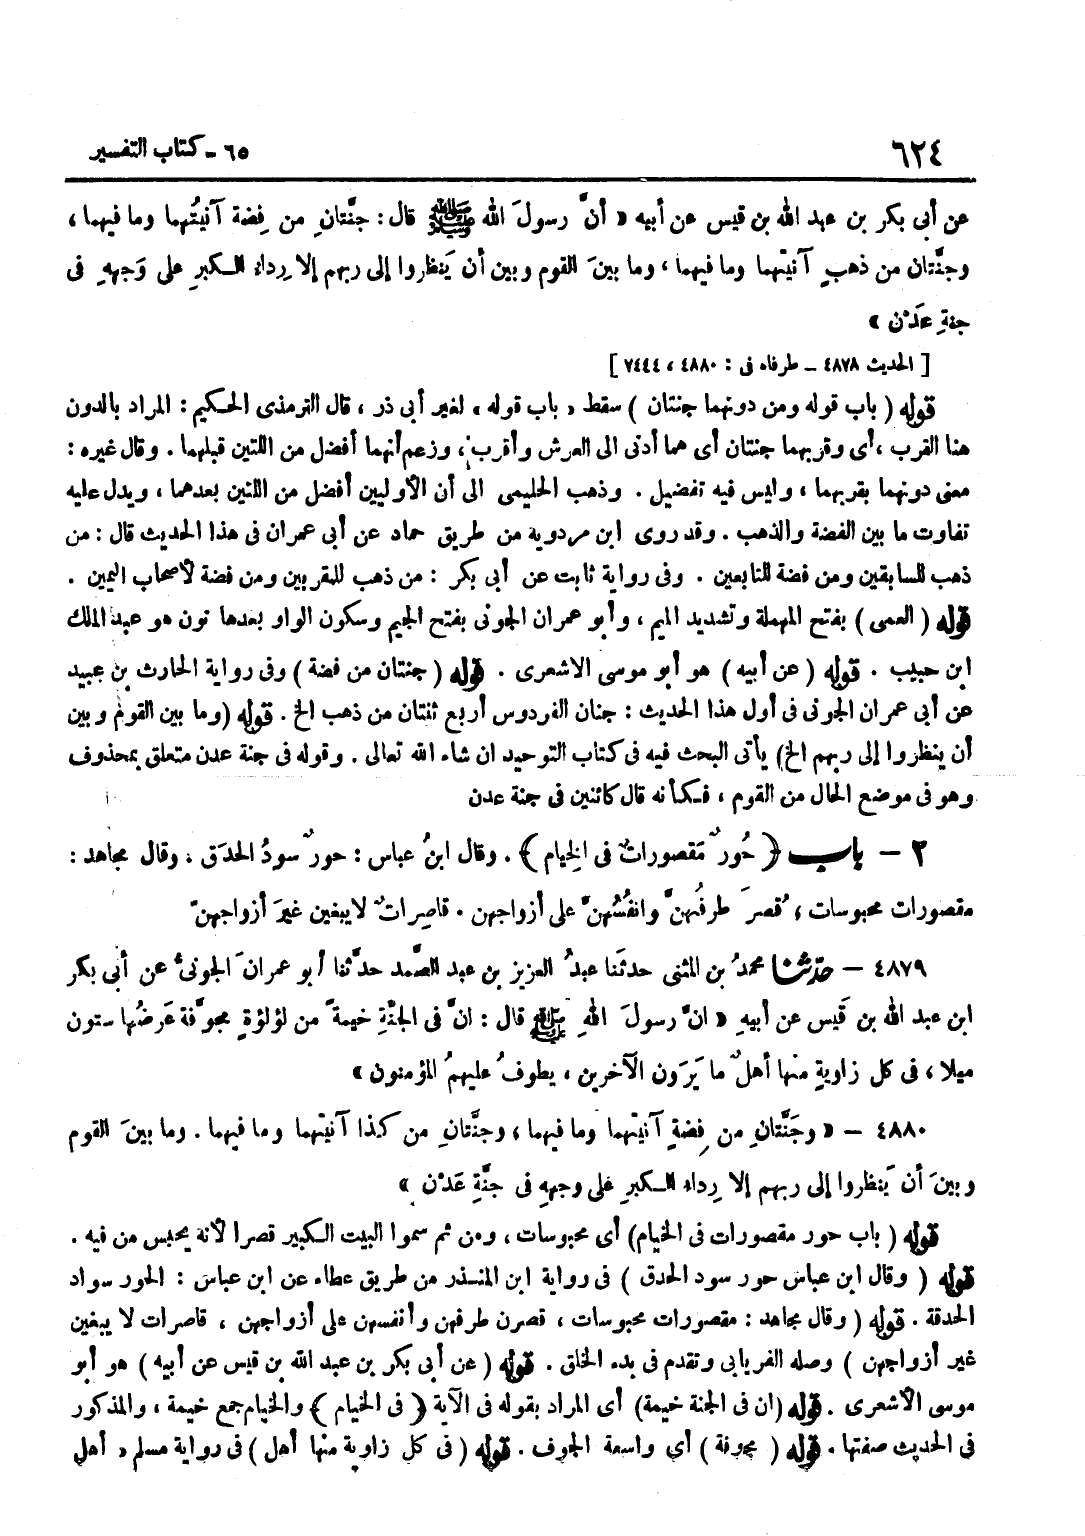 ٦٢٤
٦٥ - كتاب التفسير
عن أبى بكر بن عبد الله بن قيس عن أبيه « أنَّ رسولَ الله ﷺ قال : جنَّتانِ من فِضة آنيتُهما وما فيهما ،
وجنَّتان من ذهبٍ آنيتهما وما فيهما ، وما بينَ القوم وبين أن يَنظروا إلى ربهم إلا رِداءُ الكبرِ على وَجههِ فى
جنةِ عَدْن »
[ الحديث ٤٨٧٨ - طرفاه فى : ٤٨٨٠ ، ٧٤٤٤ ]
قوله ( باب قوله ومن دونهما جنتان ) سقط « باب قوله » لغير أبى ذر ، قال الترمذى الحكيم : المراد بالدون
هنا القرب ، أى وقربهما جنتان أى هما أدنى الى العرش وأقرب ، وزعم أنهما أفضل من اللتين قبلهما . وقال غيره :
معنى دونهما بقربهما ، وليس فيه تفضيل . وذهب الحليمى الى أن الأوليين أفضل من اللتين بعدهما ، ويدل عليه
تفاوت ما بين الفضة والذهب . وقد روى ابن مردوية من طريق حماد عن أبى عمران فى هذا الحديث قال : من
ذهب للسابقين ومن فضة للتابعين . وفى رواية ثابت عن أبى بكر : من ذهب للمقربين ومن فضة لأصحاب اليمين .
قوله ( العمى ) بفتح المهملة وتشديد الميم ، وأبو عمران الجونى بفتح الجيم وسكون الواو بعدها نون هو عبد الملك
ابن حبيب . قوله ( عن أبيه ) هو أبو موسى الاشعرى . قوله ( جنتان من فضة ) وفى رواية الحارث بن عبيد
عن أبى عمران الجونى فى أول هذا الحديث : جنان الفردوس أربع ثنتان من ذهب الخ . قوله ( وما بين القوم وبين
أن ينظروا إلى ربهم الخ ) يأتى البحث فيه فى كتاب التوحيد ان شاء الله تعالى . وقوله فى جنة عدن متعلق بمحذوف
وهو فى موضع الحال من القوم ، فكأنه قال كائنين فى جنة عدن
٢ - باب ﴿ حُورٌ مَقصوراتٌ فى الخِيام ﴾ . وقال ابنُ عباس : حورٌ سودُ الحدَق . وقال مجاهد :
مقصورات محبوسات ، قُصرَ طرفُهنَّ وانفُسُهنَّ على أزواجهن . قاصراتٌ لا يبغين غيرَ أزواجهنّ
٤٨٧٩ - حدّثنا محمدُ بن المثنى حدثَنا عبدُ العزيز بن عبد الصَّمد حدَّثنا أبو عمرانَ الجونىُّ عن أبى بكر
ابن عبد الله بن قَيس عن أبيهِ « انَّ رسولَ اللهِ ﷺ قال : انَّ فى الجنَّةِ خيمةً من لؤلؤةٍ مجوَّفة عَرضُها ستون
ميلا ، فى كل زاويةٍ منها أهلٌ ما يَرَون الآخرين ، يطوفُ عليهمُ المؤمنون »
٤٨٨٠ - « وجَنَّتانِ من فِضةٍ آنيتهما وما فيهما ، وجنَّتانِ من كذا آنيتهما وما فيهما . وما بينَ القوم
وبينَ أن يَنظروا إلى ربهم إلا رِداءُ الكبرِ على وجههِ فى جنَّةِ عَدْن »
قوله ( باب حور مقصورات فى الخيام ) أى محبوسات ، ومن ثم سموا البيت الكبير قصرا لأنه يحبس من فيه .
قوله ( وقال ابن عباس حور سود الحدق ) فى رواية ابن المنذر من طريق عطاء عن ابن عباس : الحور سواد
الحدقة . قوله ( وقال مجاهد : مقصورات محبوسات ، قصرن طرفهن وأنفسهن على أزواجهن ، قاصرات لا يبغين
غير أزواجهن ) وصله الفريابى وتقدم فى بدء الخلق . قوله ( عن أبى بكر بن عبد الله بن قيس عن أبيه ) هو أبو
موسى الأشعرى . قوله ( ان فى الجنة خيمة ) أى المراد بقوله فى الآية ﴿ فى الخيام ﴾ والخيام جمع خيمة ، والمذكور
فى الحديث صفتها . قوله ( مجوفة ) أى واسعة الجوف . قوله ( فى كل زاوية منها أهل ) فى رواية مسلم « أهل